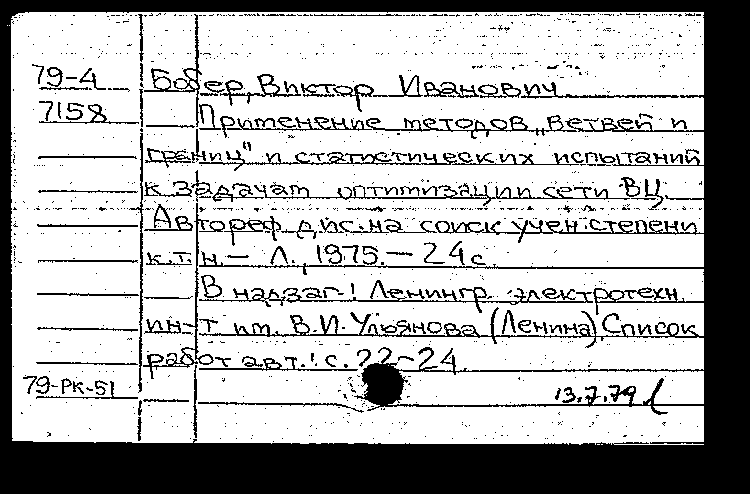 79-4 Бобер, Виктор Иванович
7158 Применение методов „ветвей и
границ" и статистических испытаний
к задачам оптимизации сети ВЦ.
Автореф. дис. на соиск. учен. степени
к.т.н. — Л., 1975. — 24 с.
В надзаг.: Ленингр. электротехн.
ин-т им. В.И. Ульянова (Ленина). Список
работ авт.: с. 22-24.
79-РК-51 13.7.79